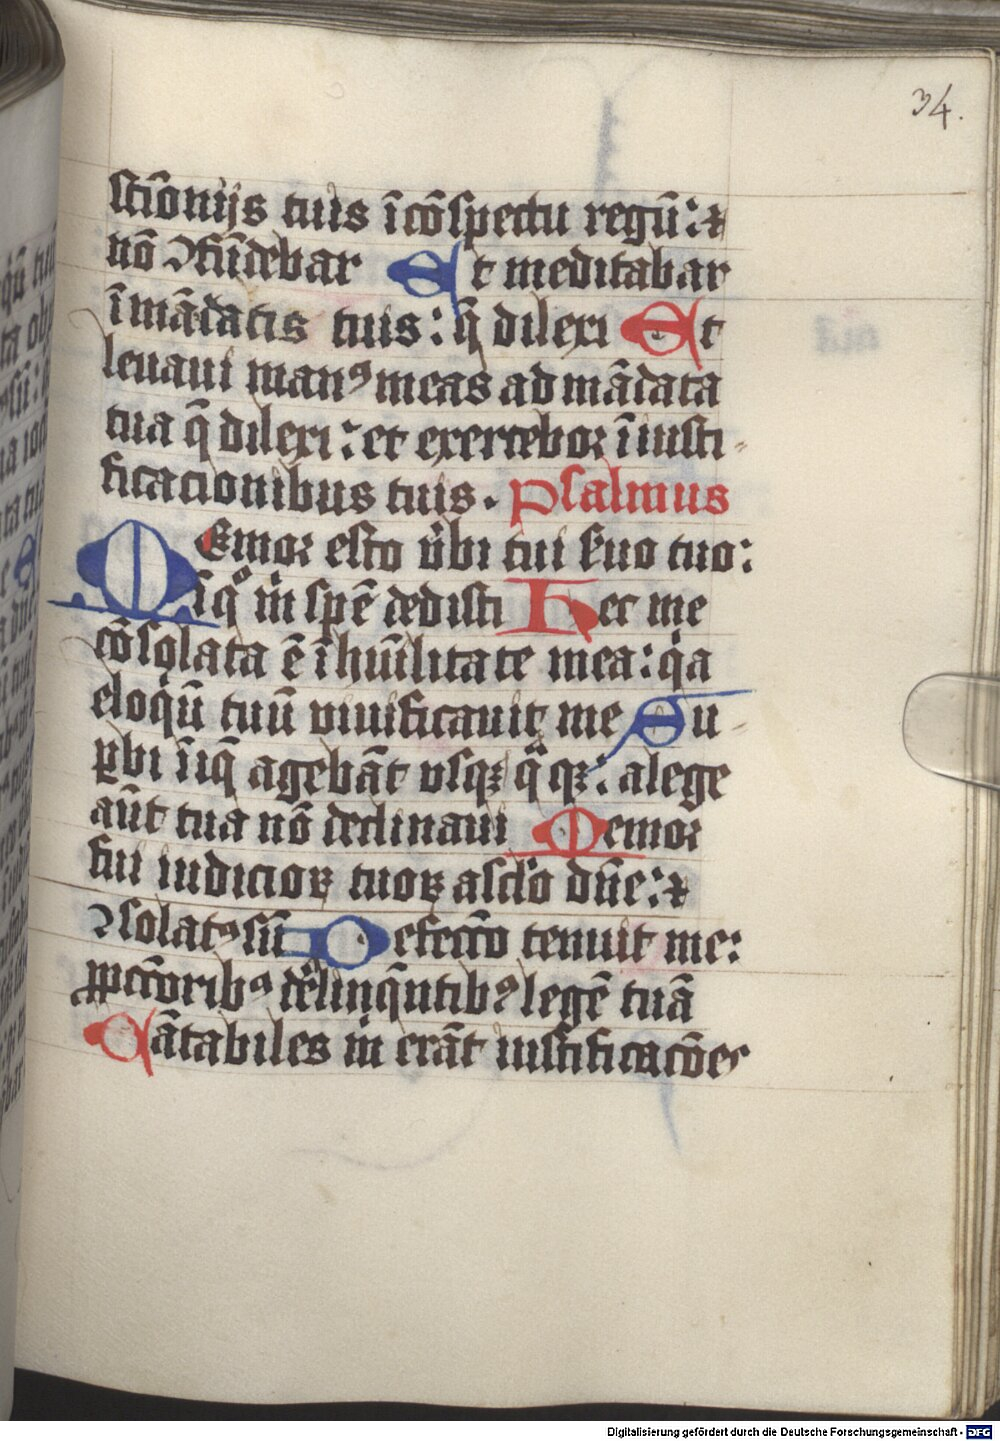 34.
stiōnijs tuis ī cōspectu regū: ⁊
nō ↄfūdebar Et meditabar
ī mādatis tuis: q̄ dilexi Et
leuaui manꝰ meas ad mādata
tua q̄ dilexi: et exercebor ī iusti-
ficacionibus tuis. Psalmus
Memor esto v̓bi tui s̓uo tuo:
ī qͦ mͥ spē dedisti Hec me
cōsolata ē ī hūilitate mea: qͥa
eloqͥū tuū viuificauit me Su-
ꝑbi īiq̄ agebāt vsqꝫ qͣqꝫ: a lege
aūt tua nō declinaui Memor
fui iudicioꝝ tuoꝝ a sclo dn̄e: ⁊
ↄsolatꝰ sū Defectō tenuit me:
ꝓ pctōribꝰ delinq̄ntibꝰ legē tuā
Cātabiles mͥ erāt iustificacōes
Digitalisierung gefördert durch die Deutsche Forschungsgemeinschaft - DFG